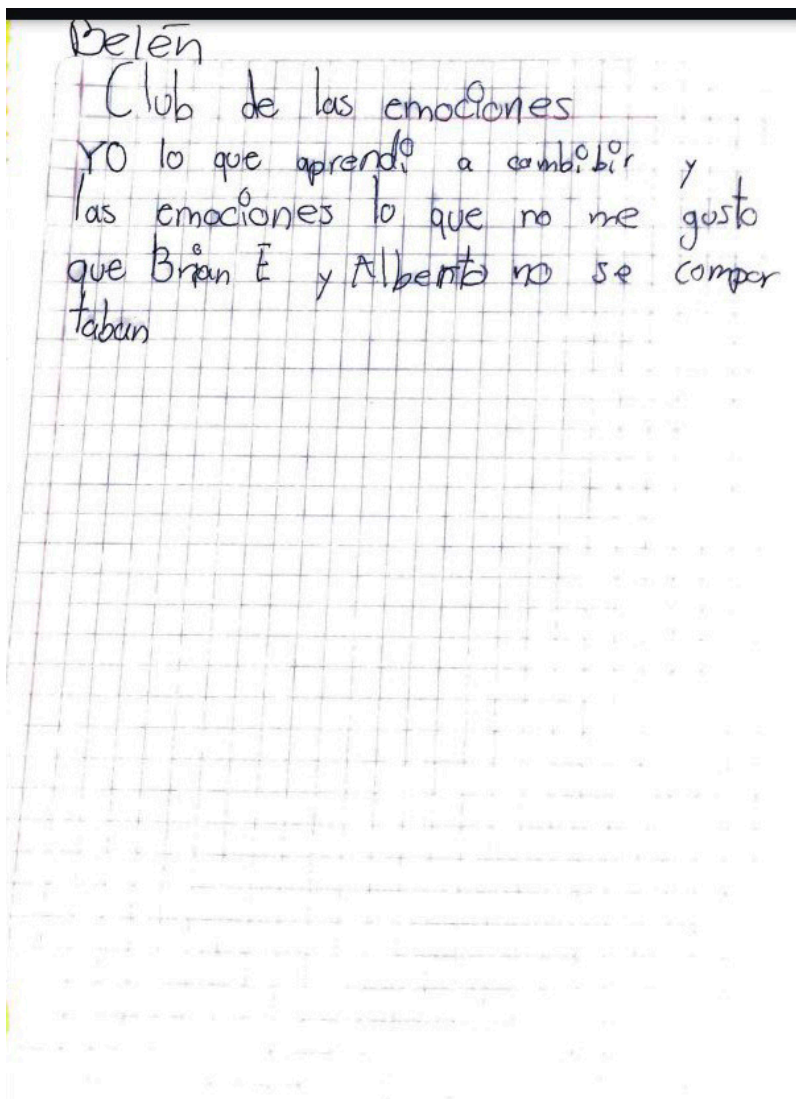 Belén
Club de las emociones
YO lo que aprendi a cambibir y
las emociones lo que no me gusto
que Brian E y Alberto no se compor
taban